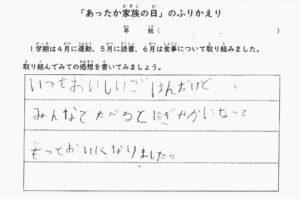 「あったか家族の日」のふりかえり
年 組(　　　　　)
1学期は4月に運動、5月に読書、6月は食事について取り組みました。
取り組んでみての感想を書いてみましょう。
いつもおいしいごはんだけど、
みんなでたべるとにぎやかになって
もっておいしくなりました。